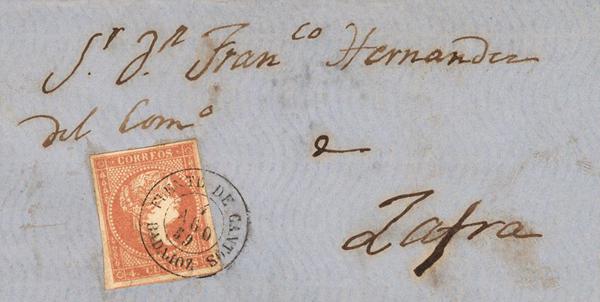 Sr. Dn. Franco Hernandez
del Como
a
Zafra
CORREOS
4. C
FUENTE DE CANTOS
AGO
59
BADAJOZ